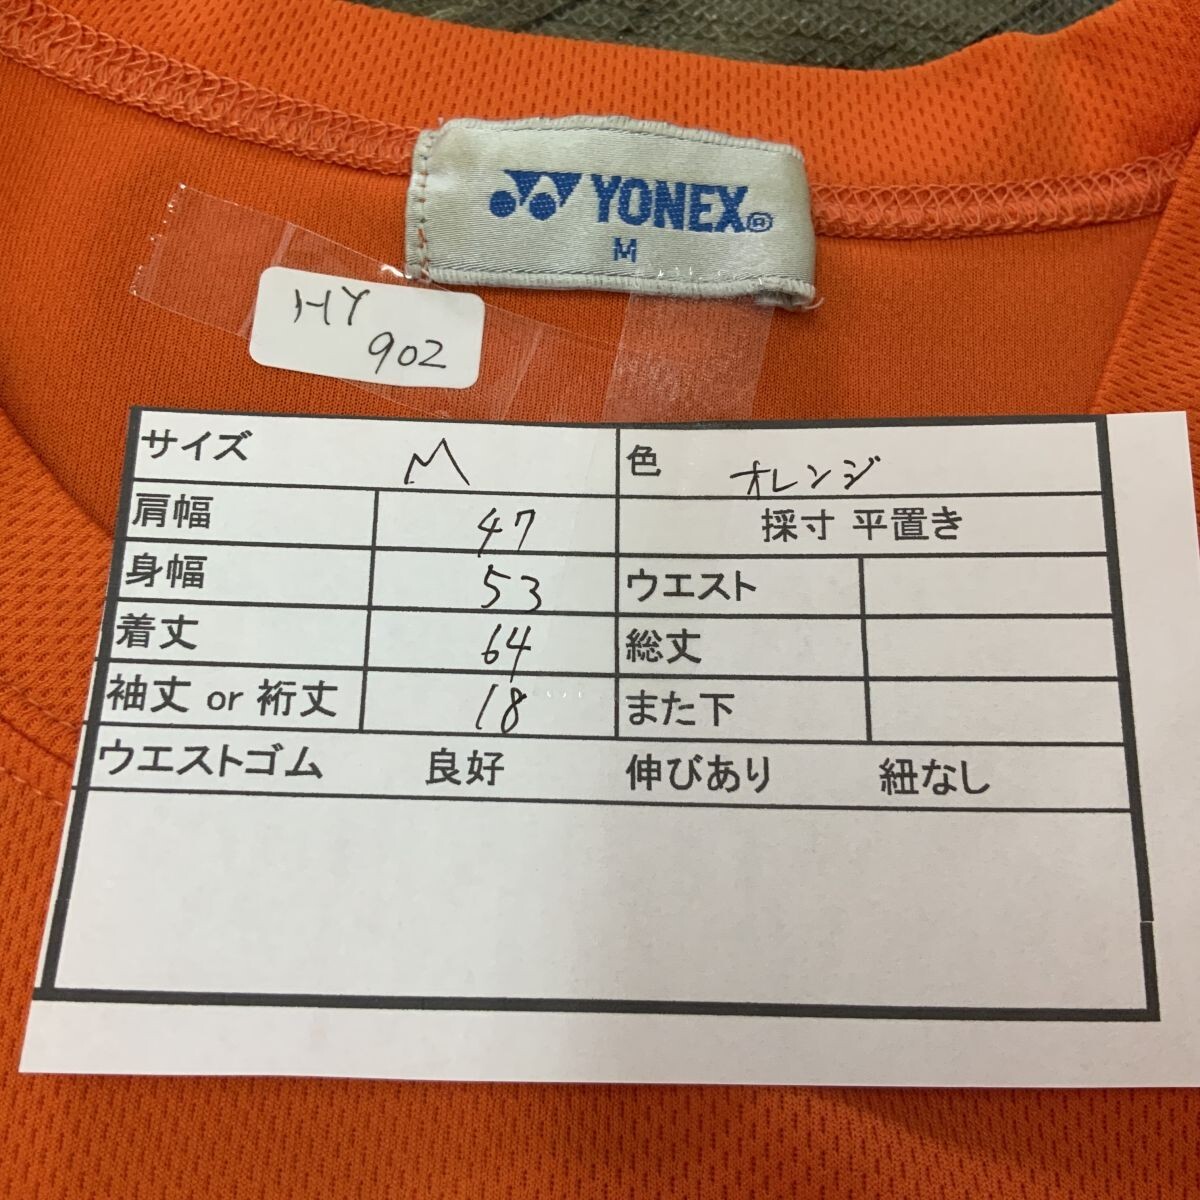 YONEX®
M
HY
902
サイズ M 色 オレンジ
肩幅 47 採寸 平置き
身幅 53 ウエスト
着丈 64 総丈
袖丈 or 裄丈 18 また下
ウエストゴム 良好 伸びあり 紐なし